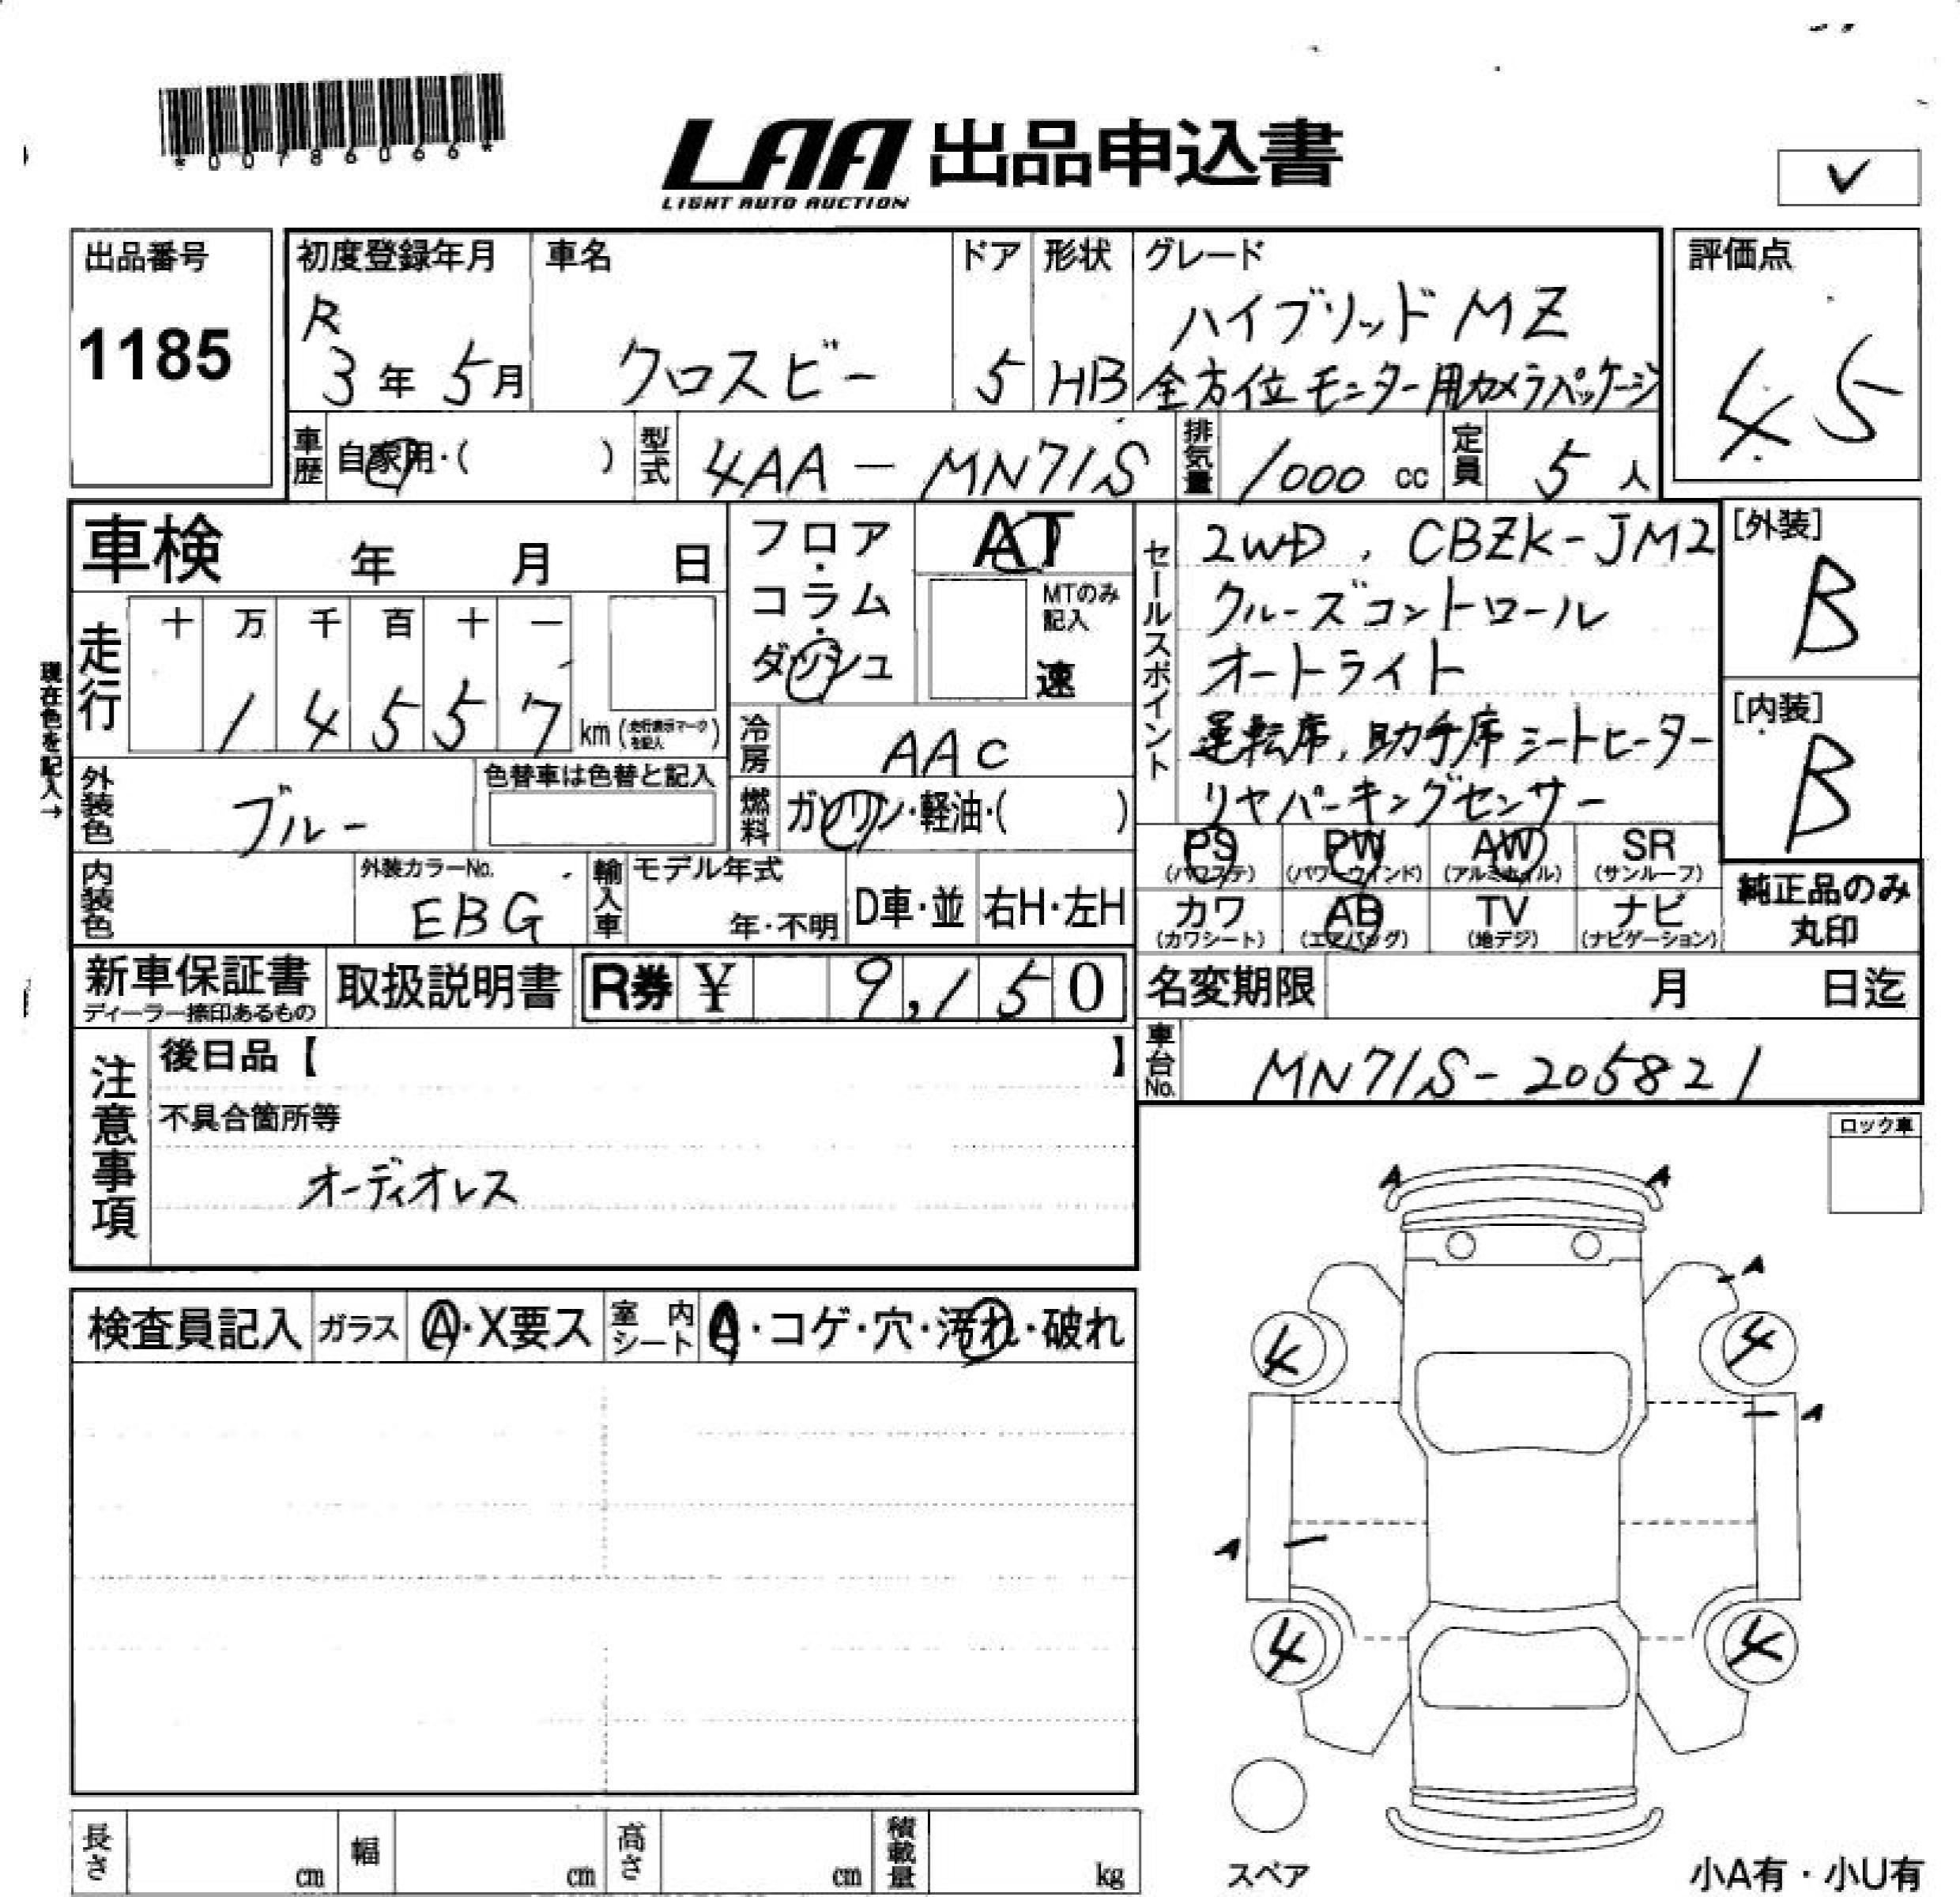 *00786066*
LAA 出品申込書
LIGHT AUTO AUCTION
✓
出品番号
1185
初度登録年月
R
3年 5月
車名
クロスビー
ドア
5
形状
HB
グレード
ハイブリッド MZ
全方位モニター用カメラパッケージ
評価点
4.5
車歴 自家用・( )
型式 4AA - MN71S
排気量 1000 cc
定員 5 人
車検 年 月 日
フロア・コラム・ダッシュ
AT
MTのみ記入
速
走行
十 万 千 百 十 一
1 4 5 5 7 km (走行表示マークを記入)
現在色を記入→
冷房 AAC
外装色 ブルー
色替車は色替と記入
燃料 ガソリン・軽油・( )
内装色
外装カラーNo.
EBG
輸入車
モデル年式
年・不明
D車・並
右H・左H
セールスポイント
2WD , CBZK-JM2
クルーズコントロール
オートライト
運転席,助手席シートヒーター
リヤパーキングセンサー
[外装]
B
[内装]
B
PS (パワステ)
PW (パワーウインド)
AW (アルミホイル)
SR (サンルーフ)
カワ (カワシート)
AB (エアバッグ)
TV (地デジ)
ナビ (ナビゲーション)
純正品のみ
丸印
新車保証書
ディーラー捺印あるもの
取扱説明書
R券 ¥ 9,150
名変期限 月 日迄
車台No. MN71S-205821
注意事項
後日品【 】
不具合箇所等
オーディオレス
ロック車
検査員記入
ガラス A・X要ス
室内シート A・コゲ・穴・汚れ・破れ
A A
A
4 4
A
A
4 4
スペア
小A有・小U有
長さ cm
幅 cm
高さ cm
積載量 kg